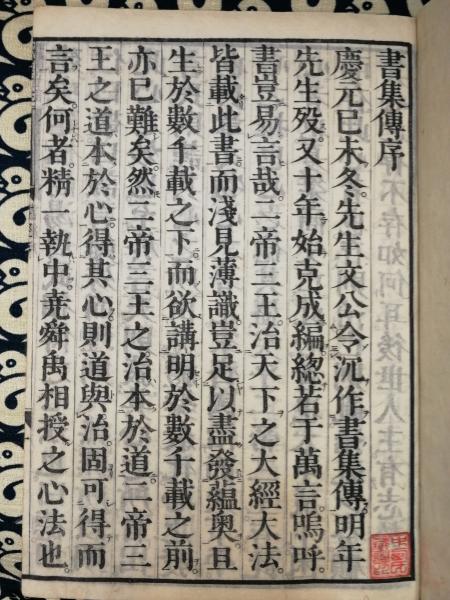 書集傳序
慶元巳未冬先生文公令沉作書集傳明年
先生歿又十年始克成編總若干萬言嗚呼
書豈易言哉二帝三王治天下之大經大法
皆載此書而淺見薄識豈足以盡發蘊奧且
生於數千載之下而欲講明於數千載之前
亦巳難矣然二帝三王之治本於道二帝三
王之道本於心得其心則道與治固可得而
言矣何者精 執中堯舜禹相授之心法也